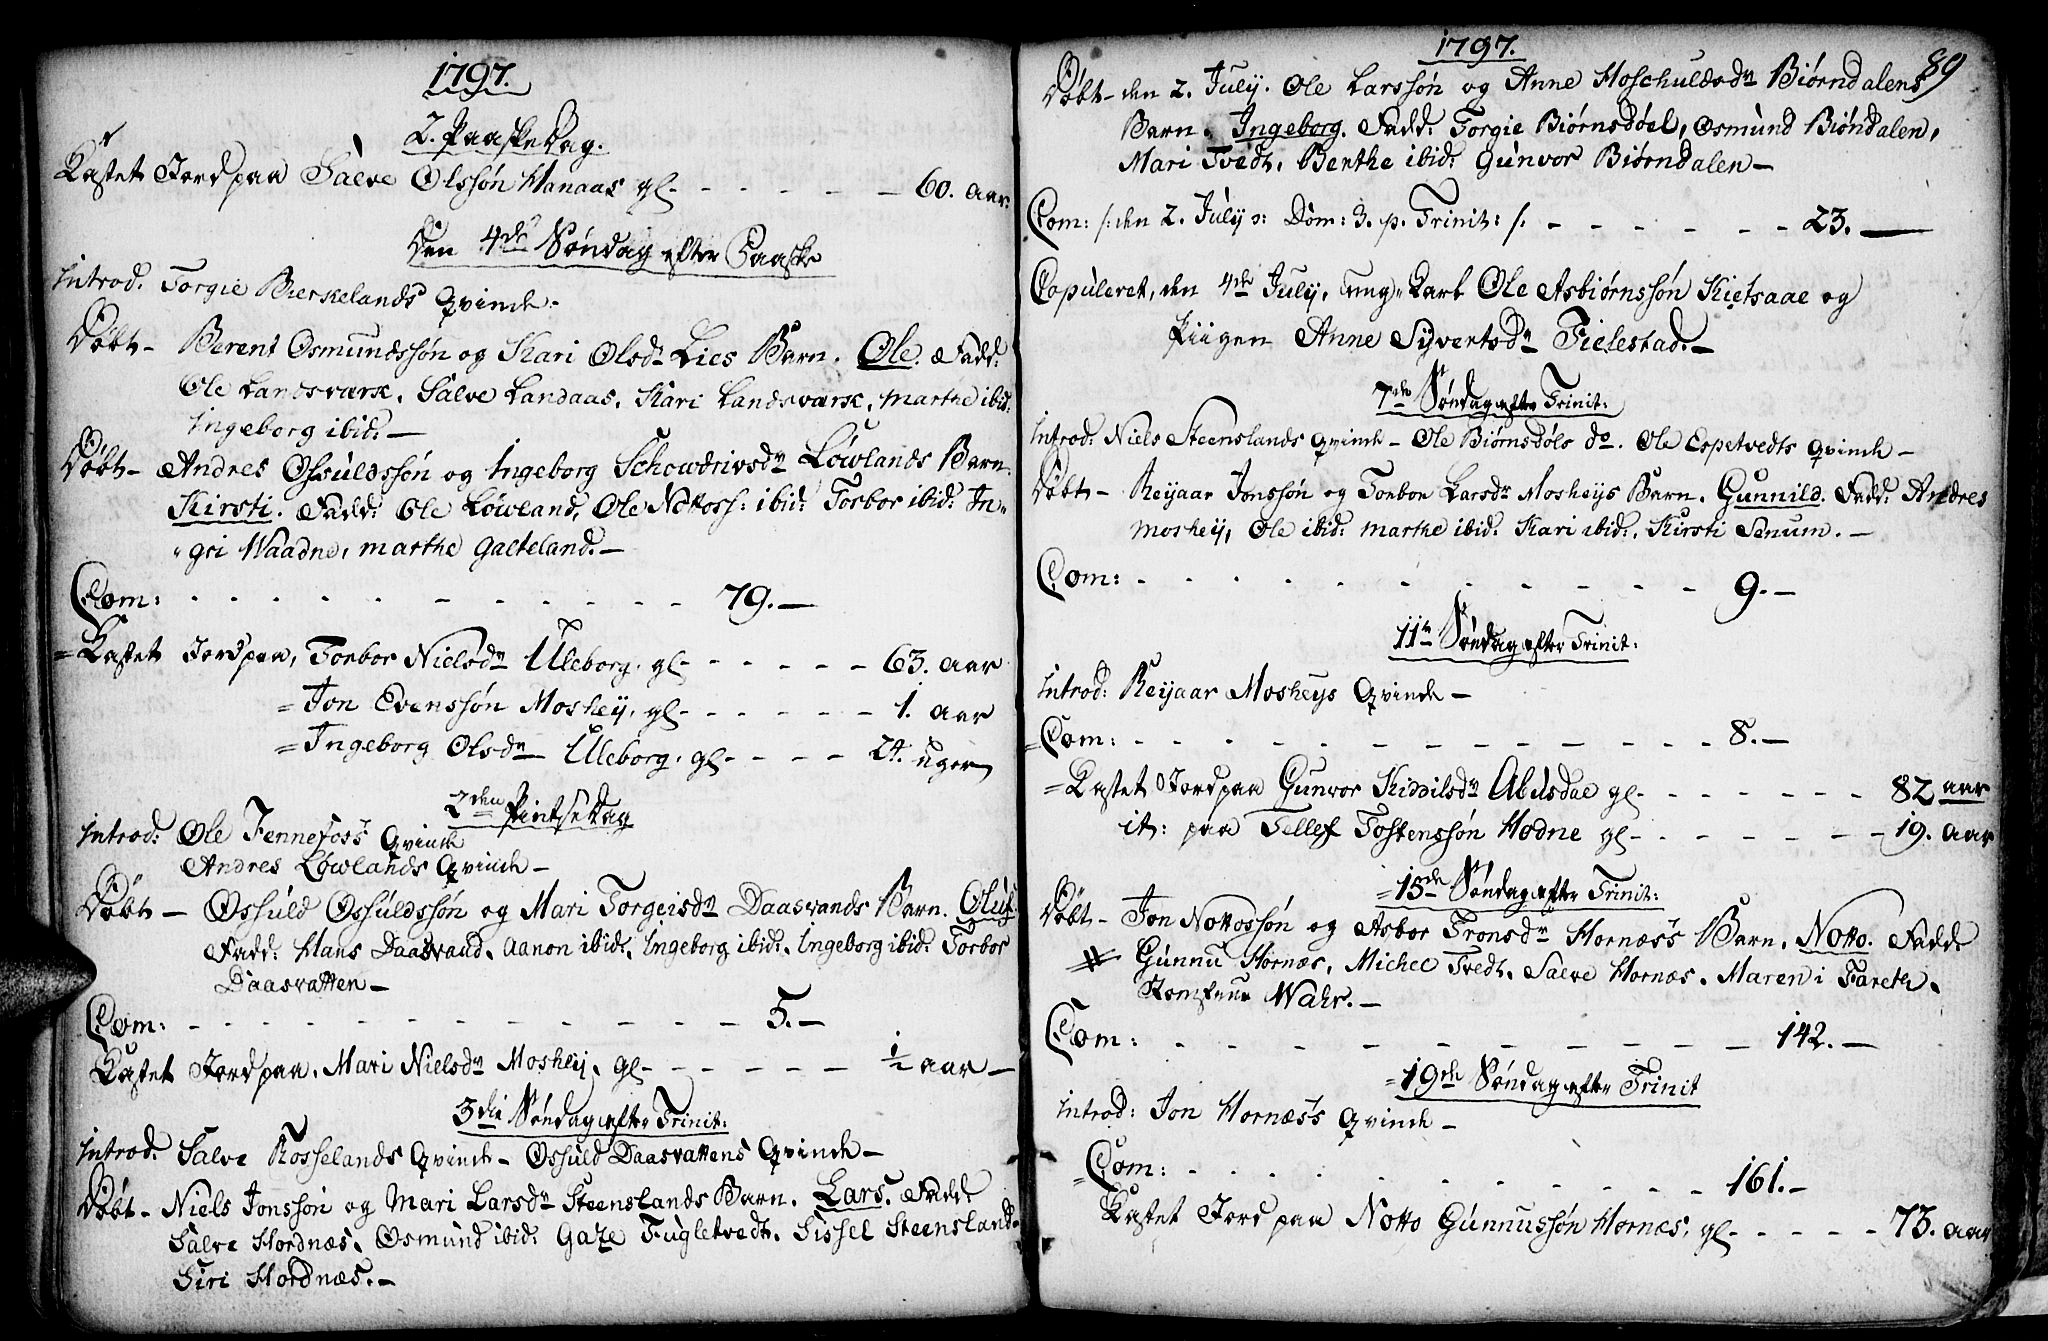 1797.
2. Paaske Dag.
Kastet Jord paa Salve Olssøn Hanaas gl. - - - - - 60. aar.
Den 4de Søndag efter Paaske
Introd. Torgie Birkelands Qvinde.
Døbt - Berent Osmundssøn og Kari Olsdr Lies Barn. Ole. Fadd:
Ole Landsværk, Salve Landaas, Kari Landsværk, Marthe ibid:
Ingeborg ibid: —
Døbt - Andres Osuldssøn og Ingeborg Løwlands Barn.
Kirsti. Fadd: Ole Løwland, Ole Nottoss: ibid: Torbor ibid: In-
"gri Waadne, Marthe Gateland. —
Com: - - - - - - - - - - - 79. —
= Kastet Jord paa, Torbor Nielsdr Uleborg, gl - - - - - 63. aar
= Jon Evenssøn Moshey, gl - - - - - 1. aar
= Ingeborg Olsdr Uleborg, gl - - - - 24. uger
2den Pintse Dag
Introd: Ole Jennefoss's Qvinde
Andres Løwlands Qvinde —
Døbt — Osuld Osuldssøn og Mari Torgeisdr Daasvands Barn. Oluf
Fadd: Hans Daasvand, Aanon ibid:, Ingeborg ibid:, Ingeborg ibid: Torbor
Daasvatten —
Com: - - - - - - - - - - - 5. —
Kastet Jord paa, Mari Nielsdr Moshey, gl - - - - - ½ aar —
3die Søndag efter Trinit:
Introd. Salve Rosselands Qvinde — Osuld Daasvattens Qvinde —
Døbt - Niels Jonssøn og Mari Larsdr Steenslands Barn. Lars. Fadd:
Salve Hordnæs, Osmund ibid: Gaze Fugletvedt, Sissel Steensland
Siri Hordnæs. —
1797.
89
Døbt - den 2. July. Ole Larssøn og Anne Bjørndalens
Barn. Ingeborg. Fadd: Torgie Biørnsdøel, Osmund Biøndalen,
Mari Tvedt, Benthe ibid: Gunvor Biørndalen —
Com: /: den 2. July ɔ: Dom: 3. p. Trinit: /. - - - - - - - 23. —
Copuleret, den 4de July, Ung-Karl Ole Asbiørnssøn Kietsaae og
Piigen Anne Syvertsdr Fielestad. —
7de Søndag efter Trinit:
Introd: Niels Steenslands Qvinde — Ole Biørnsdøls do. Ole Espetvedts Qvinde —
Døbt - Reijaar Jonssøn og Torbor Larsdr Mosheys Barn. Gunnild. Fadd: Andres
Moshey, Ole ibid: Marthe ibid: Kari ibid:, Kirsti Senum. —
Com: - - - - - - - - - - - 9. —
11te Søndag efter Trinit:
Introd: Reijaar Mosheys Qvinde —
= Com: - - - - - - - - - - - 8. —
= Kastet Jord paa Gunvor Kiddilsdr Abusdae gl - - - - - - 82 aar
it: paa Tellef Tostenssøn Hodne gl - - - - - - 19. aar
= 15de Søndag efter Trinit:
Døbt - Jon Nottossøn og Asbor Tronsdr Hornæss Barn. Notto. Fadd:
Gunnu Hornæs, Michel Tvedt, Salve Hornæs, Maren i
Wahr. —
Com: - - - - - - - - - - - 142. —
= 19de Søndag efter Trinit
Introd: Jon Hornæss Qvinde —
= Com: - - - - - - - - - - - 161. —
Kastet Jord paa Notto Gunnussøn Hornæs, gl - - - - - 73. aar